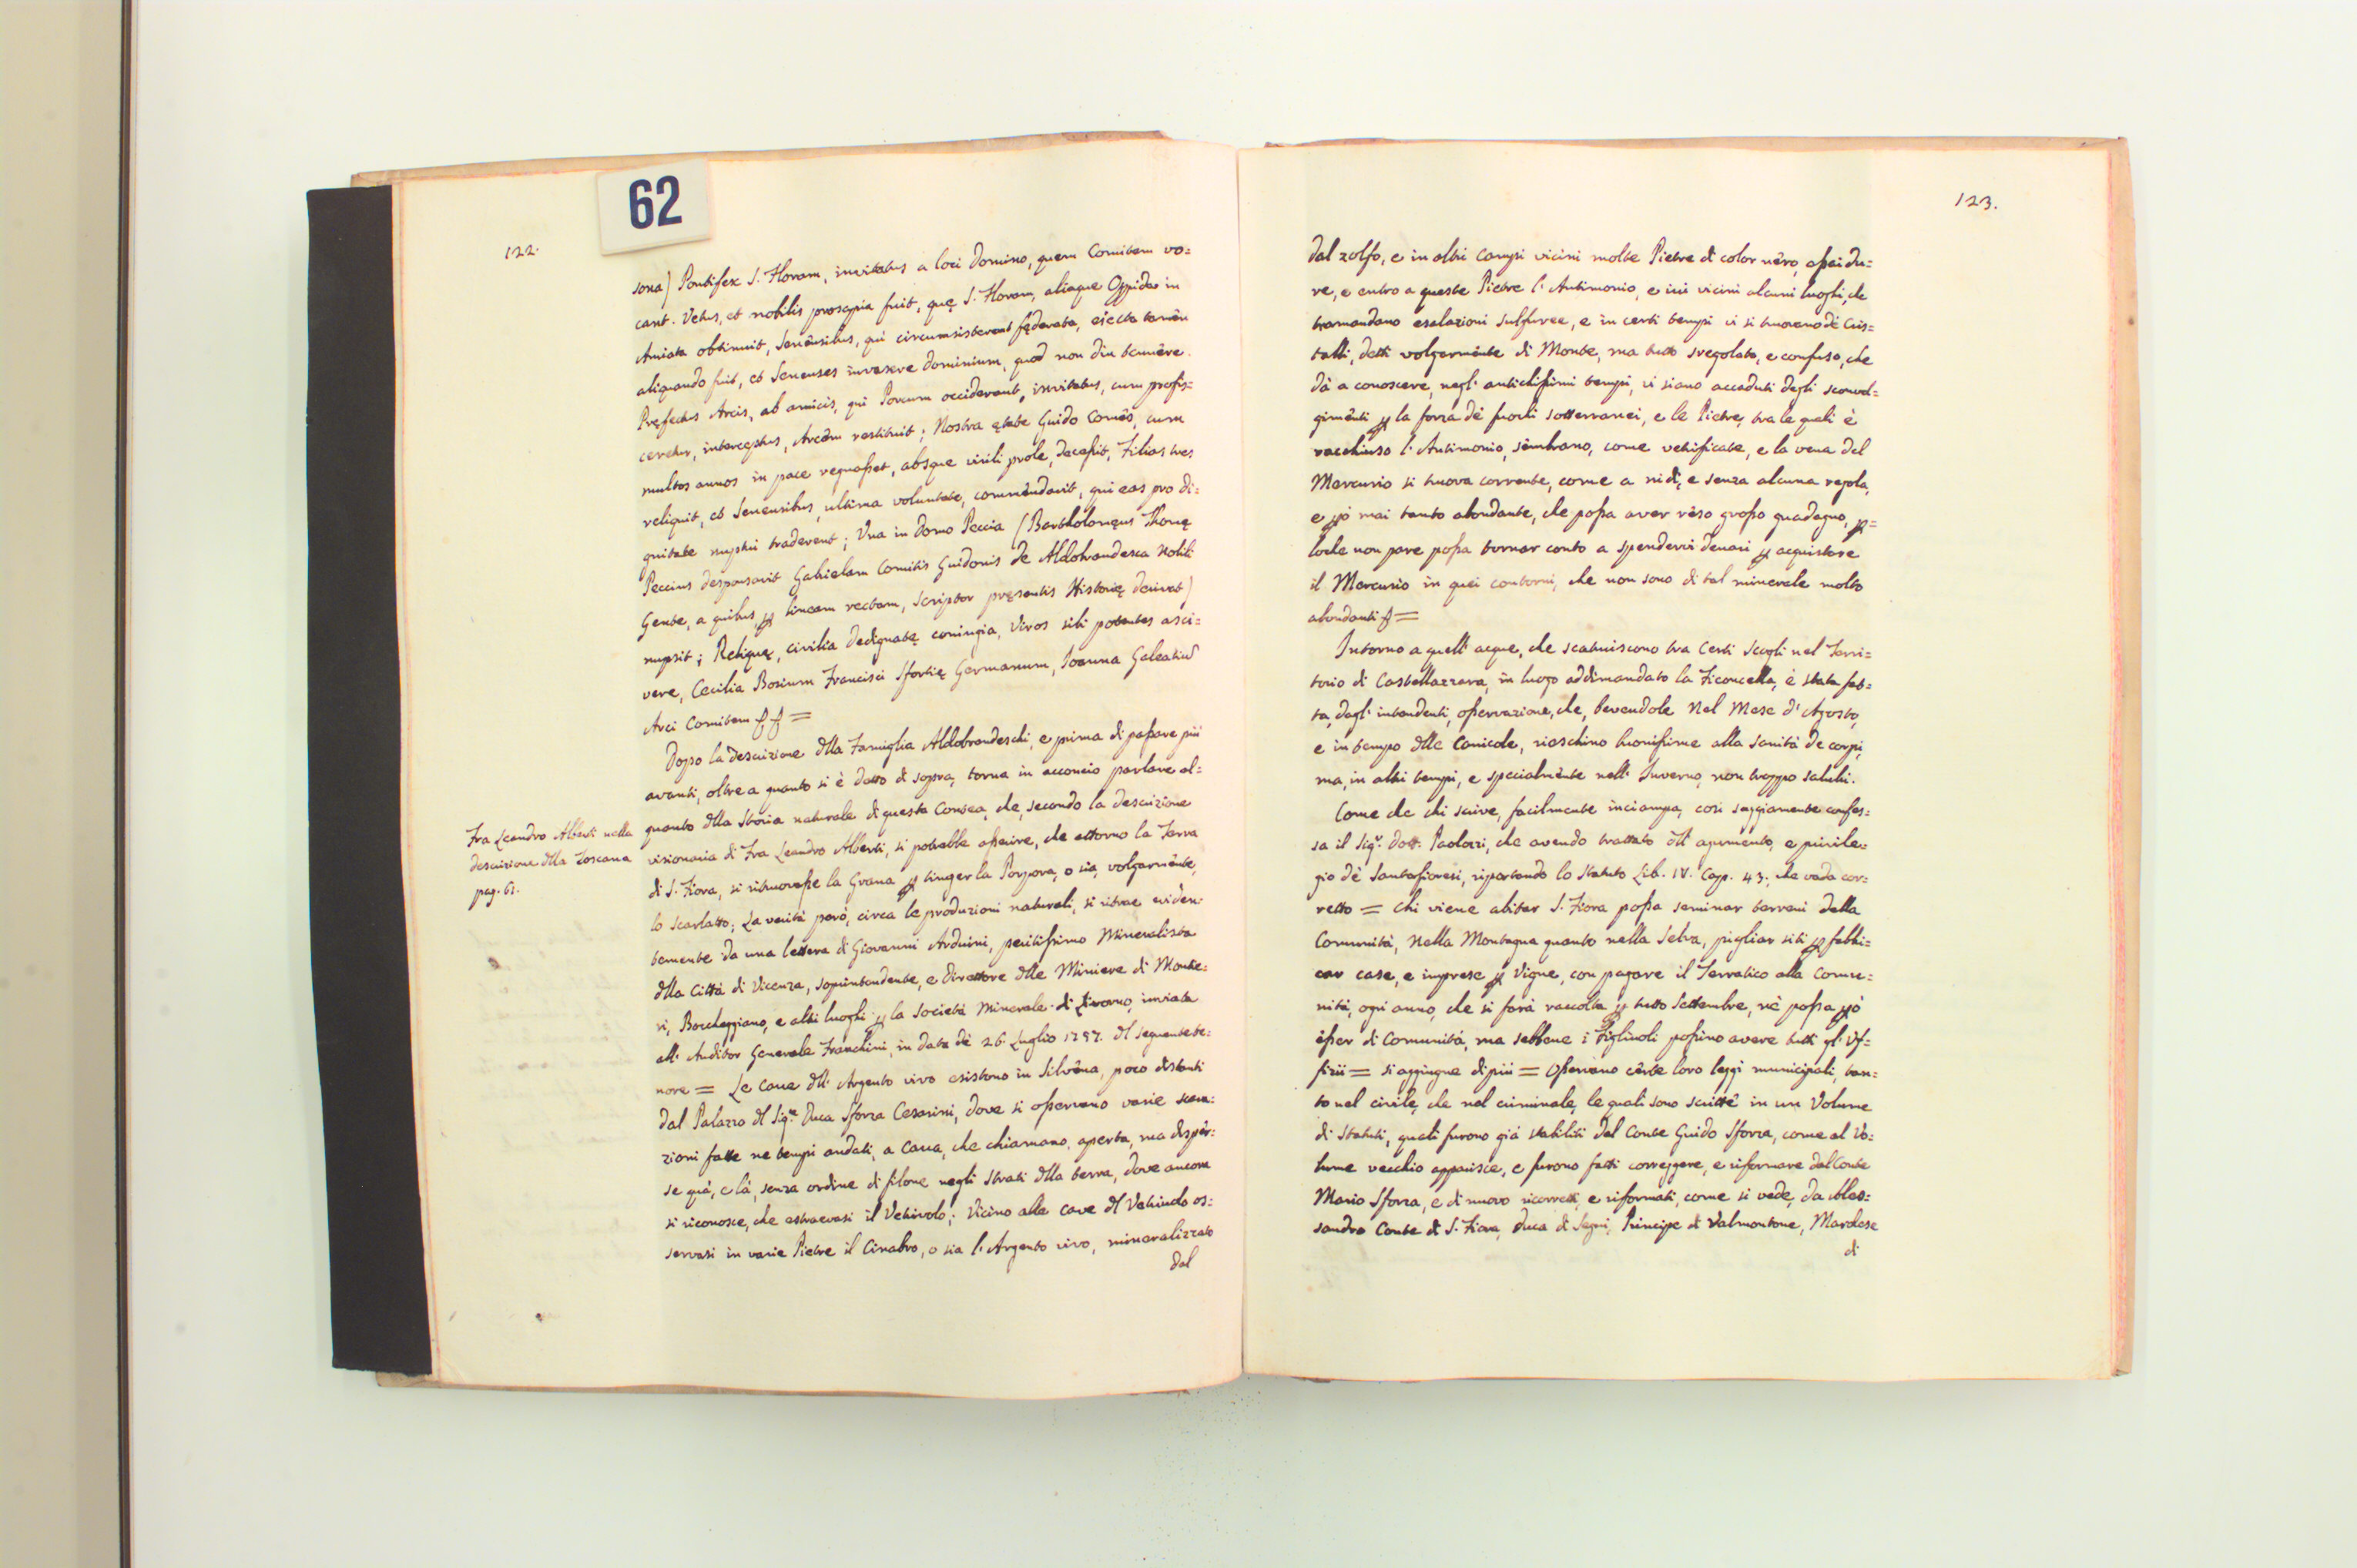 62
122.
sona) Pontifex S. Floram, invitatus a loci Domino, quem Comitem vo=
cant. Vetus, et nobilis prosapia fuit, quę S. Floram, aliaque Oppida in
Amiata obtinuit, Senensibus, qui circumsisterent fęderata, eiecta tamen
aliquando fuit, et Senenses invasere dominium, quod non diu tenuere.
Pręfectus Arcis, ab amicis, qui Porcum occiderant, invitatus, cum profis=
ceretur, interceptus, Arcem restituit; Nostra ętate Guido Comes, cum
multos annos in pace regnasset, absque virili prole, decessit, Filias tres
reliquit, et Senensibus, ultima voluntate, commendavit, qui eas pro di=
gnitate nuptui traderent; Una in domo Peccia (Bartholomęus Thomę
Peccius desponsavit Gabrielam Comitis Guidonis de Aldobrandesca Nobili
Gente, a quibus, p lineam rectam, scriptor pręsentis Historię derivat)
nupsit; Reliquę, civilia dedignatę coniugia, Viros sibi potentes asci=
vere, Cecilia Bosium Francisci Sfortię Germanum, Joanna Galeatium
Arci Comitem ff =
Dopo la descrizione dlla Famiglia Aldobrandeschi, e prima di passare più
avanti, oltre a quanto si è detto di sopra, torna in acconcio parlare al=
quanto dlla Storia naturale di questa Contea, che, secondo la descrizione
visionaria di Fra Leandro Alberti, si potrebbe asserire, che attorno la Terra
di S. Fiora, si ritrovasse la Grana p tinger la Porpora, o sia, volgarmente,
lo Scarlatto; La verità però, circa le produzioni naturali, si ritrae eviden=
temente da una lettera di Giovanni Arduini, peritissimo Mineralista
dlla Città di Vicenza, sopuintendente, e direttore dlle Miniere di Montie=
ri, Boccheggiano, e altri luoghi p la Società Minerale di Livorno, inviata
all' Auditor Generale Franchini, in data dè 26. Luglio 1757. dl seguente te=
nore = Le Cave dll' Argento vivo esistono in Silvena, poco distanti
dal Palazzo dl Sigr. Duca Sforza Cesarini, dove si osservano varie scava=
zioni fatte ne tempi andati, a Cava, che chiamano, aperta, ma disper=
se quà, e là, senza ordine di filone negli strati dlla terra, dove ancora
si riconosce, che estraevasi il Vetrivolo; Vicino alle Cave dl Vetriuolo os=
servasi in varie Pietre il Cinabro, o sia l' Argento vivo, mineralizzato
dal
Fra Leandro Alberti nella
descrizione dlla Toscana
pag. 61.
123.
dal zolfo, e in altri Campi vicini molte Pietre di color nero, assai du=
re, e entro a queste Pietre l' Antimonio, e ivi vicini alcuni luoghi, che
tramandano esalazioni sulfuree, e in certi tempi vi si trovano dè Cris=
talli, detti volgarmente di Monte, ma tutto sregolato, e confuso, che
dà a conoscere, negl' antichissimi tempi, vi siano accaduti degli sconvol=
gimenti p la forza dè fuochi sotterranei, e le Pietre, tra le quali è
racchiuso l' Antimonio, sembrano, come vetrificate, e la vena del
Mercurio si trova corrente, come a nidi, e senza alcuna regola,
e pò mai tanto abondante, che possa aver reso grosso guadagno, p=
loche non pare possa tornar conto a spendervi denari p acquistare
il Mercurio in quei contorni, che non sono di tal minerale molto
abondanti f =
Intorno a quell' acque, che scaturiscono tra certi Scogli nel Terri=
torio di Castellazzara, in luogo addimandato la Ficoncella, è stata fat=
ta, dagl' intendenti, osservazione, che, bevendole nel Mese d' Agosto,
e in tempo dlle Canicole, rieschino buonissime alla sanità de corpi,
ma, in altri tempi, e specialmente nell' Inverno, non troppo salubri.
Come che chi scrive, facilmente inciampa, così saggiamente confes=
sa il Sigr. Dott. Paolozzi, che avendo trattato dll' aumento, e privile=
gio dè Santafioresi, riportando lo Statuto Lib. IV. Cap. 43., che vada cor=
retto = Chi viene abitar S. Fiora possa seminar terreni della
Comunità, nella Montagna quanto nella Selva, pigliar siti p fabbi=
car case, e imprese p Vigne, con pagare il Terratico alla Comu=
nità, ogni anno, che si farà raccolta p tutto Settembre, nè possa pò
esser di Comunità, ma sebbene i Figliuoli possino avere tutti gl' Uf=
fizii = si aggiugne di più = Osservano certe loro leggi municipali, tan=
to nel civile, che nel criminale, le quali sono scritte in un Volume
di Statuti, quali furono già stabiliti dal Conte Guido Sforza, come al Vo=
lume vecchio apparisce, e furono fatti correggere, e riformare dal Conte
Mario Sforza, e di nuovo ricorretti, e riformati, come si vede, da Ales=
sandro Conte di S. Fiora, Duca di Segni, Principe di Valmontone, Marchese
di